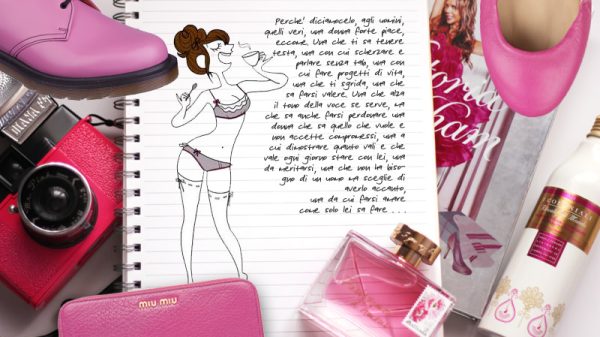 Perche' diciamocelo, agli uomini,
quelli veri, una donna forte piace,
eccome. Una che ti sa tenere
testa, una con cui scherzare e
parlare senza tab, una con
cui fare progetti di vita,
una che ti sgrida, una che
sa farsi valere. Una che alza
il tono della voce se serve, ma
che sa anche farsi perdonare una
donna che sa quello che vuole e
non accetta compromessi, una a
cui dimostrare quanto vali e che
vale ogni giorno stare con lei, una
da meritarsi, una che non ha biso-
gno di un uomo ma sceglie di
averlo accanto,
una da cui farsi amare
come solo lei sa fare . . .
MIU MIU